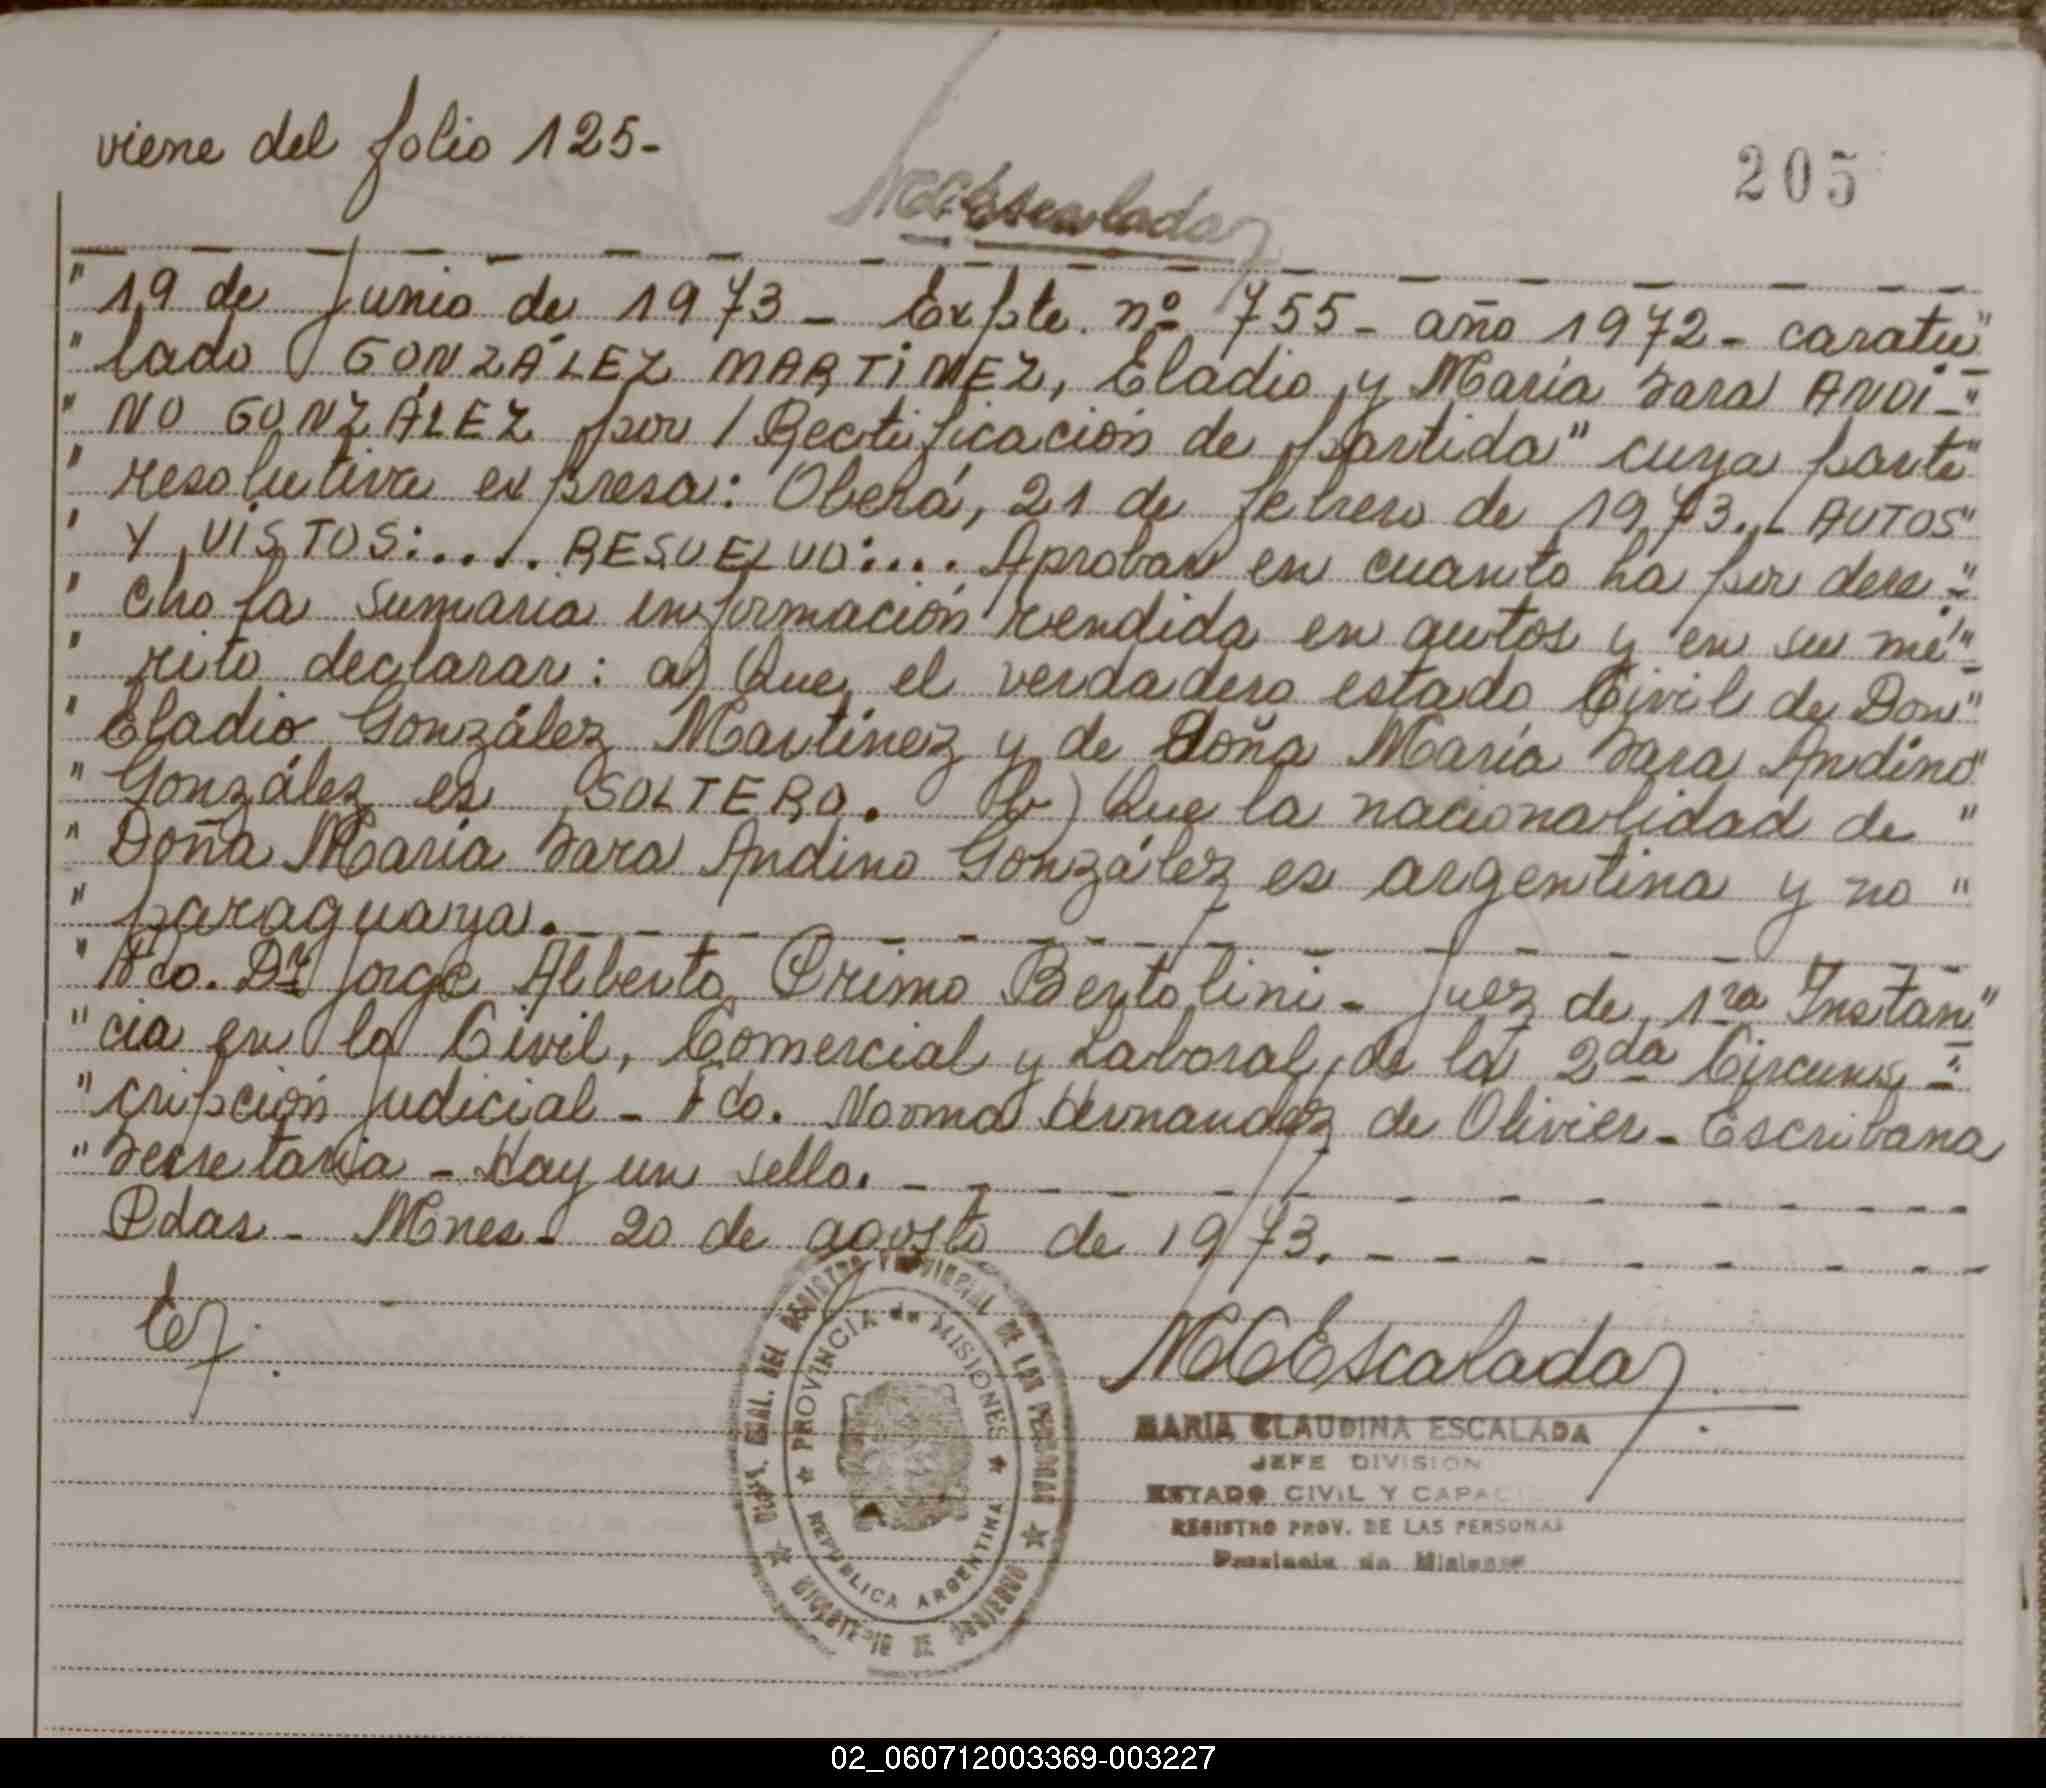 viene del folio 125-
205
MCEscalada
" 19 de Junio de 1973 - Expte. nº 755 - año 1972 - caratu"
" lado GONZÁLEZ MARTINEZ, Eladio y María Sara ANDI-"
" NO GONZÁLEZ por / Rectificación de partida" cuya parte"
" resolutiva expresa: Oberá, 21 de febrero de 1973.- AUTOS"
" Y VISTOS:..... RESUELVO:.... Aprobar en cuanto ha por dere-"
" cho la sumaria información rendida en autos y en su mé"
" rito declarar: a) Que el verdadero estado Civil de Don"
" Eladio González Martínez y de Doña María Sara Andino"
" González es SOLTERO. b) Que la nacionalidad de "
" Doña María Sara Andino González es argentina y no "
" paraguaya.
" Fdo. Dr Jorge Alberto Primo Bertolini - Juez de 1ra Instan"
" cia en lo Civil, Comercial y Laboral de la 2da Circuns-"
" cripción Judicial - Fdo. Norma Hernandez de Olivier - Escribana
" Secretaria - Hay un sello.
Pdas - Mnes - 20 de agosto de 1973.
MCEscalada
MARIA CLAUDINA ESCALADA
JEFE DIVISION
ESTADO CIVIL Y
REGISTRO PROV. DE LAS PERSONAS
Provincia de Misiones
GRAL. DEL REGISTRO PROVINCIAL DE LAS PERSONAS
PROVINCIA de MISIONES
REPUBLICA ARGENTINA
MINISTERIO DE GOBIERNO
02_060712003369-003227